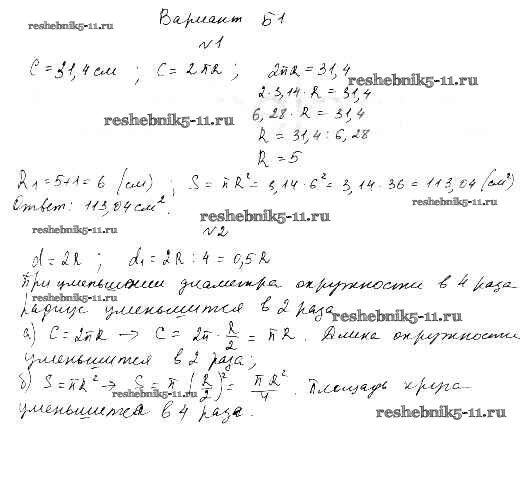 Вариант Б1
reshebnik5-11.ru
№1
C = 31,4 см ; C = 2πR ; 2πR = 31,4
reshebnik5-11.ru
2·3,14·R = 31,4
reshebnik5-11.ru 6,28·R = 31,4
R = 31,4 : 6,28
R = 5
R₁ = 5+1 = 6 (см) ; S = πR² = 3,14·6² = 3,14·36 = 113,04 (см²)
Ответ: 113,04 см².
reshebnik5-11.ru
reshebnik5-11.ru №2
d = 2R ; d₁ = 2R : 4 = 0,5R
При уменьшении диаметра окружности в 4 раза
reshebnik5-11.ru
радиус уменьшится в 2 раза
reshebnik5-11.ru
а) C = 2πR → C = 2π · R/2 = πR. Длина окружности
уменьшится в 2 раза;
б) S = πR² → S = π (R/2)² = πR²/4 . Площадь круга
reshebnik5-11.ru
уменьшится в 4 раза.
reshebnik5-11.ru